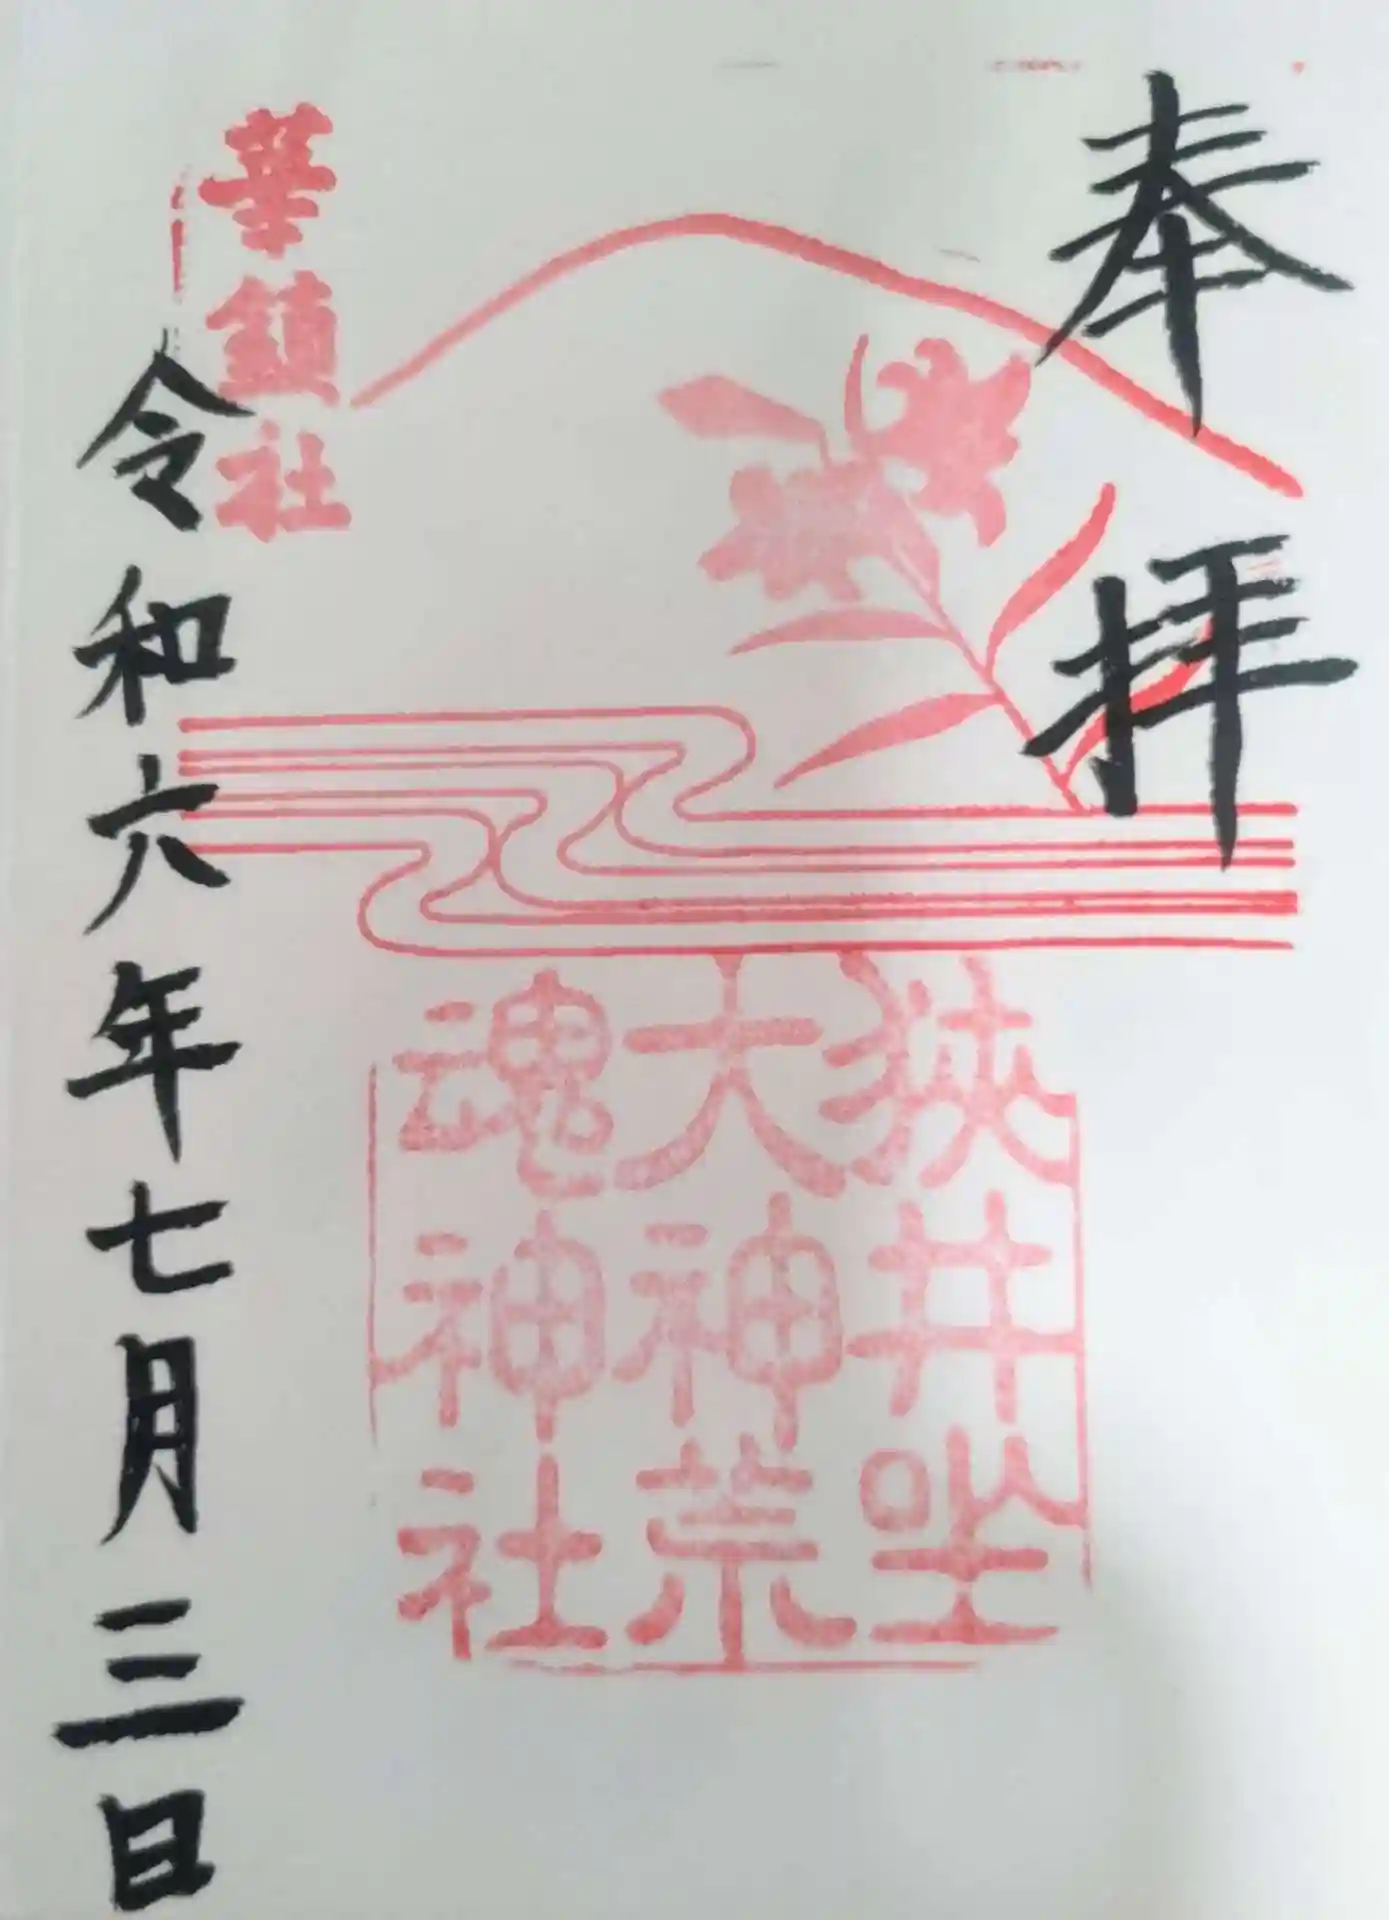 奉拝
狭井坐
大神荒
魂神社
華鎮社
令和六年七月三日